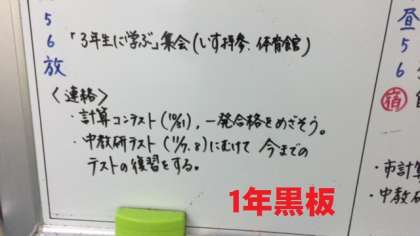 5
6 「3年生に学ぶ」集会(いす持参、体育館)
放
<連絡>
・計算コンテスト(10/31)、一発合格をめざそう。
・中教研テスト(11/7.8)にむけて 今までの
テストの復習をする。
1年黒板
昼
5
6
宿
・市計算
・中教研